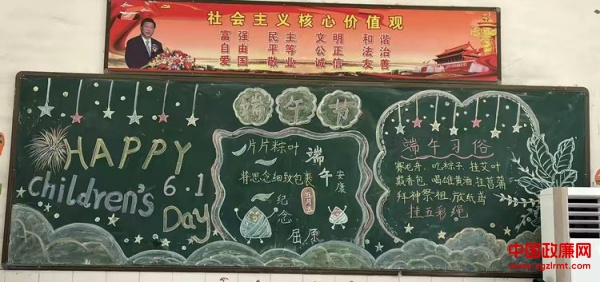 社会主义核心价值观
富强 民主 文明 和谐
自由 平等 公正 法治
爱国 敬业 诚信 友善
端午节
HAPPY
children's
6.1
Day
片片粽叶
将思念细致包裹
纪念
屈原
端午
安康
端午习俗
赛龙舟、吃粽子、挂艾叶
戴香包、喝雄黄酒、挂菖蒲
拜神祭祖、放纸鸢
拴五彩绳
中国政廉网
www.zgzlrmt.com